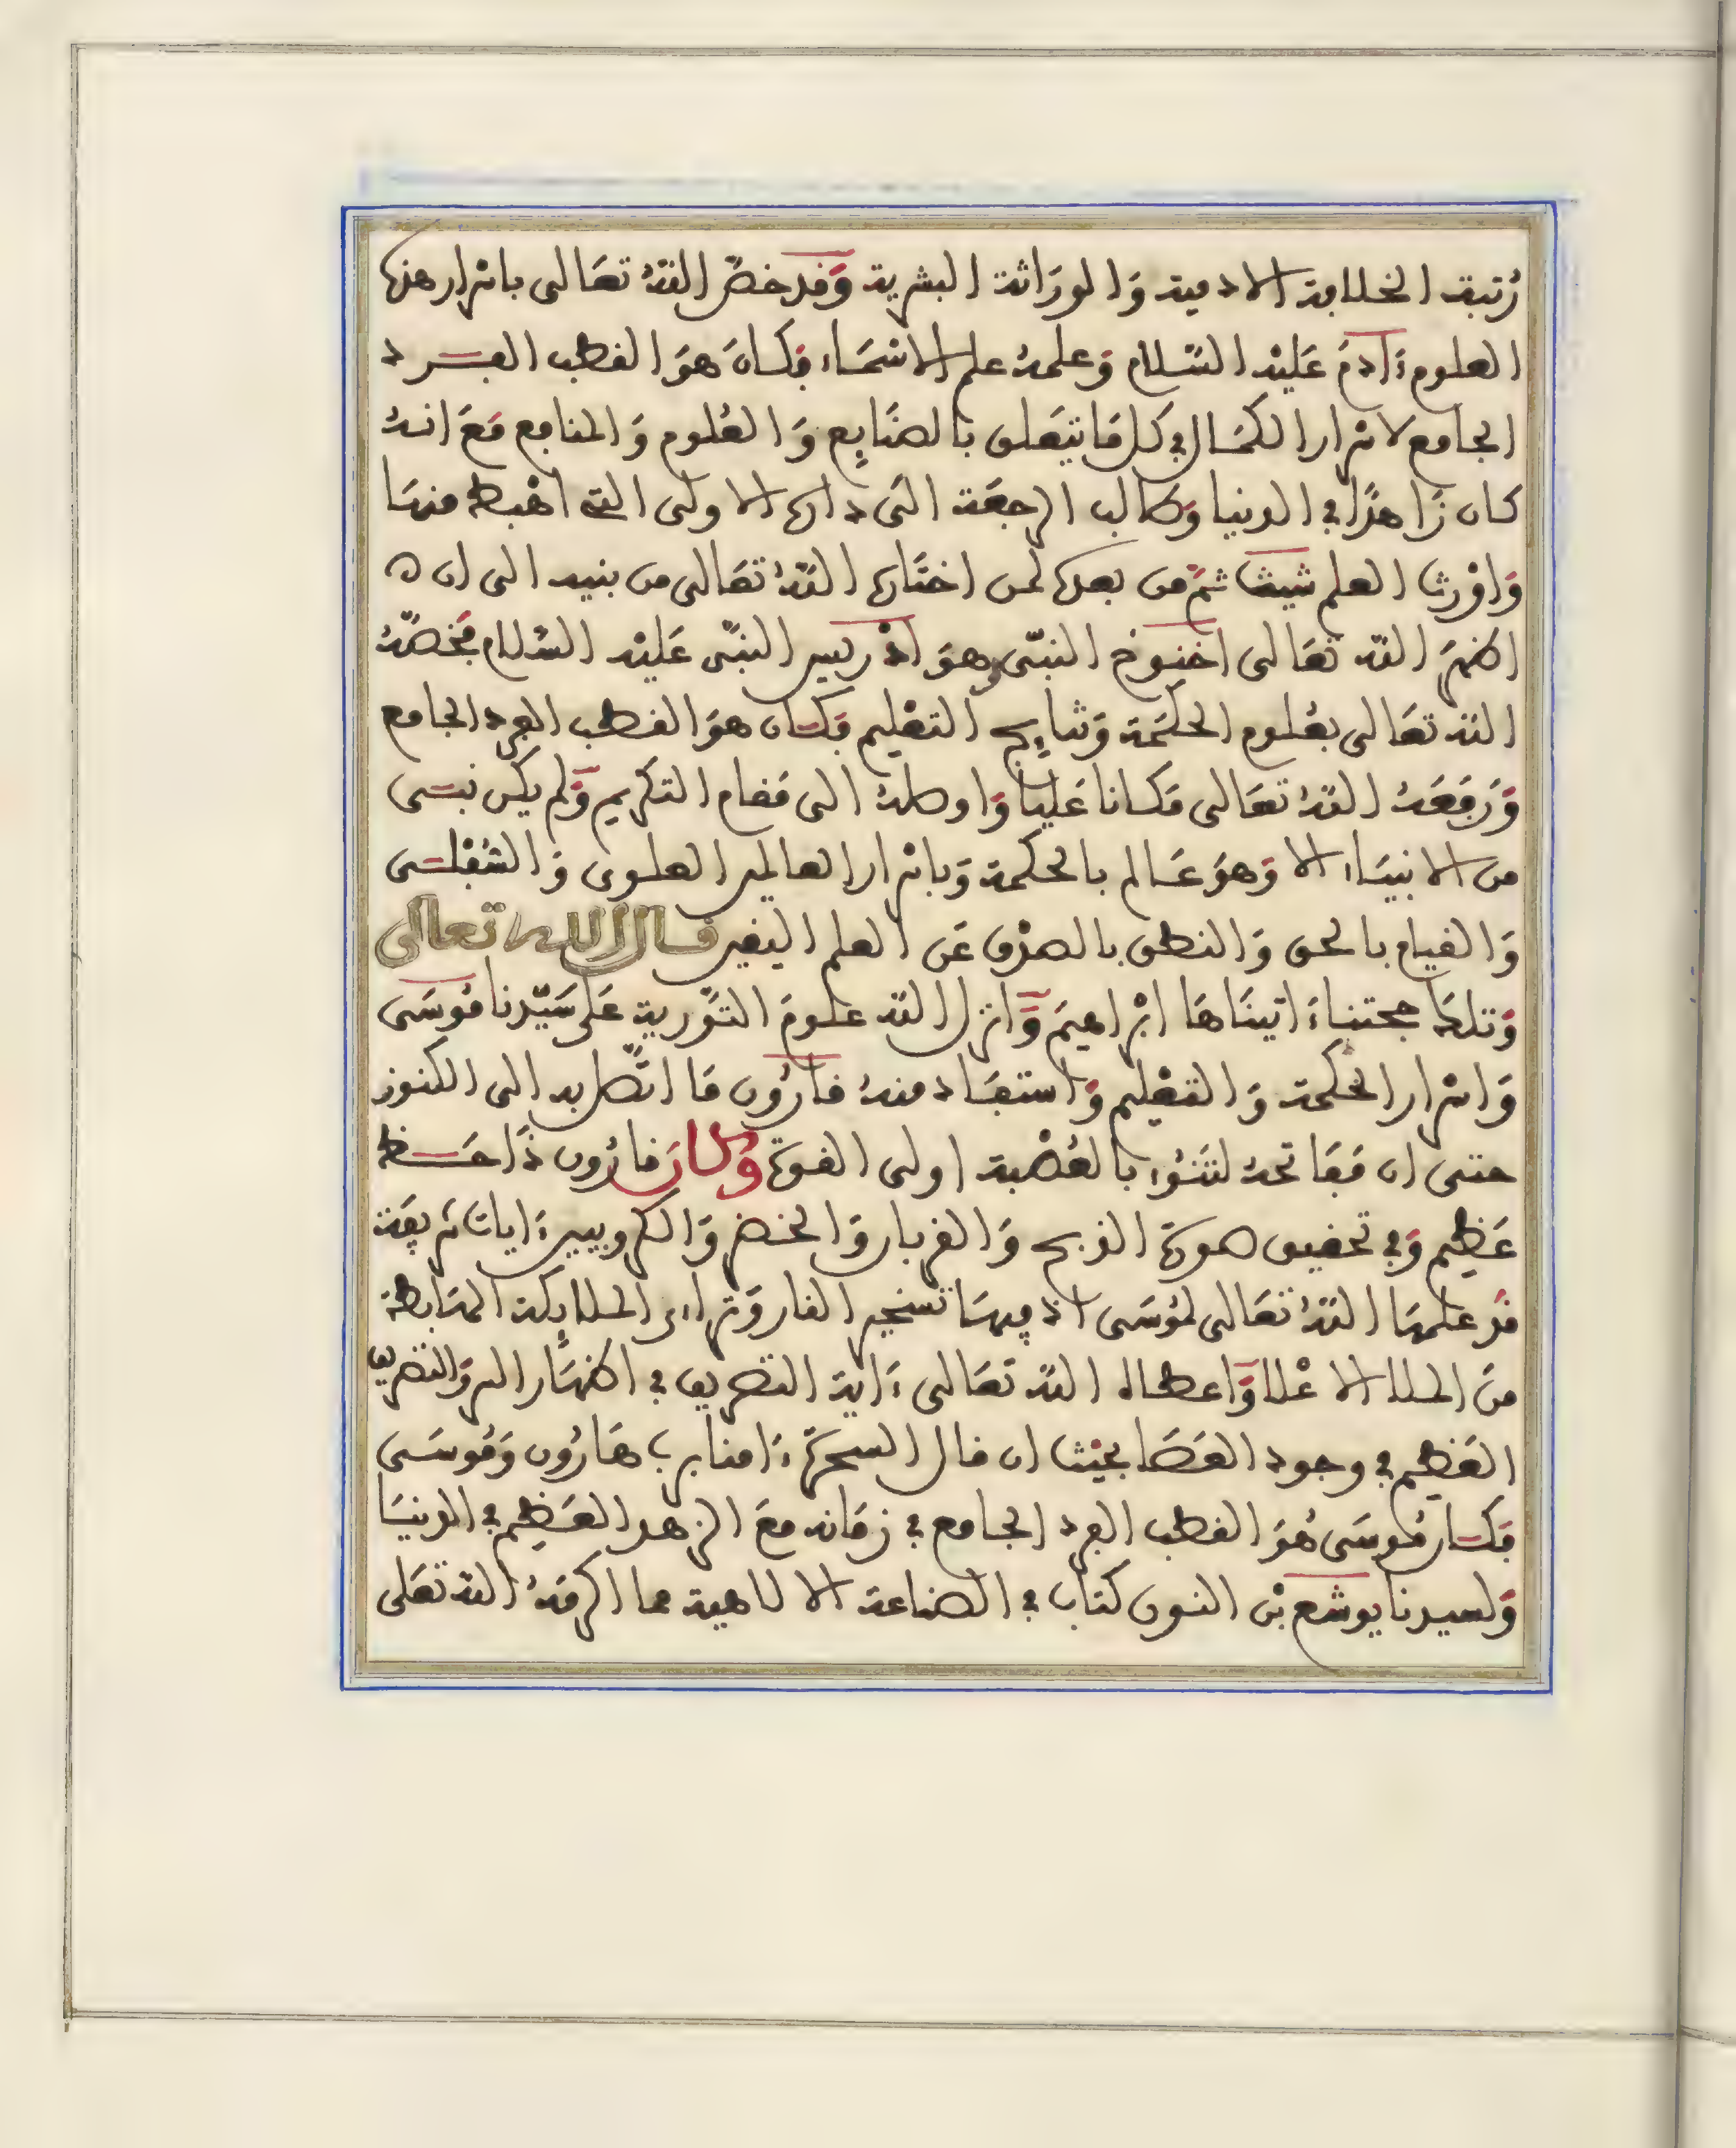 رتبة الخلافة الادمية والوراثة البشرية وقد خص الله تعالى باسرار هذه
العلوم ءادم عليه السلام وعلمه علم الاسماء فكان هو القطب الفرد
الجامع لاسرار الكمال في كل ما يتعلق بالصنايع والعلوم والمنافع مع انه
كان زاهدا في الدنيا وطالب الرجعة الى داره الاولى التي اهبط منها
واورث العلم شيث ثم من بعده لمن اختاره الله تعالى من بنيه الى ان
اظهر الله تعالى اخنوخ النبي وهو ادريس النبي عليه السلام فخصه
الله تعالى بعلوم الحكمة ونتايج التعليم فكان هو القطب الفرد الجامع
ورفعه الله تعالى مكانا عليا واوصله الى مقام التكريم ولم يكن نبي
من الانبياء الا وهو عالم بالحكمة وباسرار العالمين العلوي والسفلي
والقيام بالحق والنطق بالصدق عن العلم اليقين قال الله تعالى
وتلك حجتنا ءاتيناها ابراهيم وانزل الله علوم التورية على سيدنا موسى
واسرار الحكمة والتعليم واستفاد منه قارون ما اتصل به الى الكنوز
حتى ان مفاتحه لتنوء بالعصبة اولى القوة وكان قارون ذا حظ
عظيم وفي تحقيق صورة الذبح والقربان والخضر والكروبيين ءايات شريفة
قد علمها الله تعالى لموسى اذ فيها تسخير النار وتراءى الملايكة الهابطة
من الملا الاعلا واعطاه الله تعالى ءاية التصريف في اظهار السر والتصريف
العظيم في وجود العصا بحيث ان قال السحرة ءامنا برب هارون وموسى
فكان موسى هو القطب الفرد الجامع في زمانه مع الزهد العظيم في الدنيا
ولسيدنا يوشع بن النون كتاب في الصناعة الالاهية مما اكرمه الله تعلى